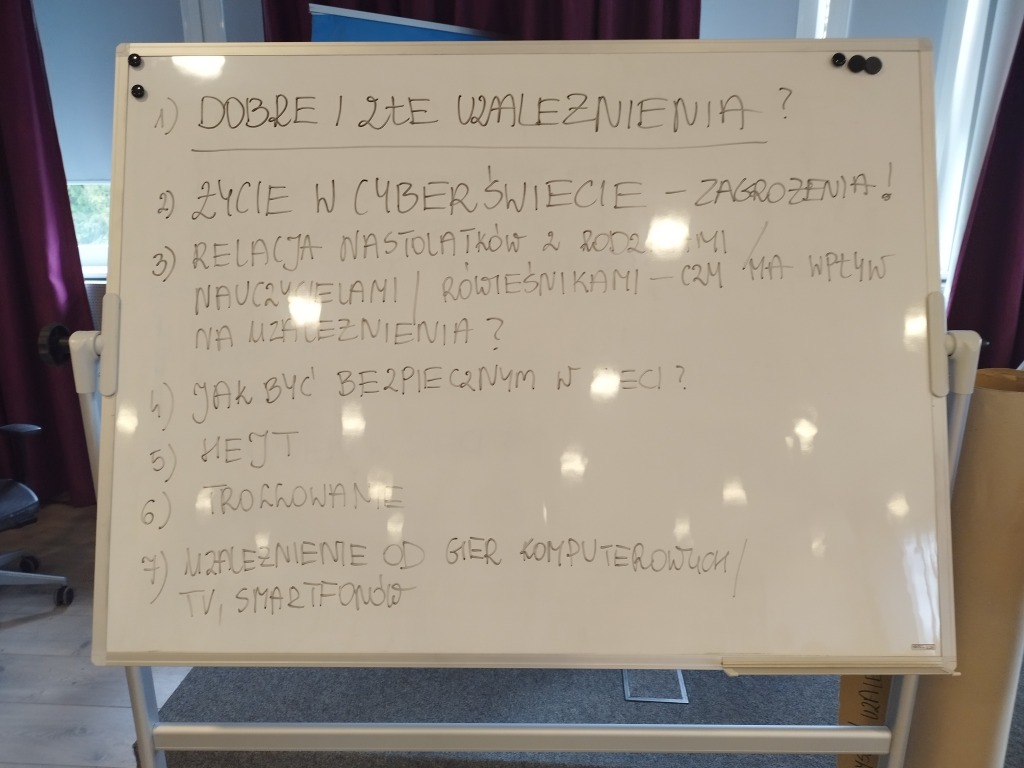 1) DOBRE I ZŁE UZALEŻNIENIA ?
2) ŻYCIE W CYBERŚWIECIE – ZAGROŻENIA!
3) RELACJA NASTOLATKÓW Z RODZICAMI /
NAUCZYCIELAMI / RÓWIEŚNIKAMI – CZY MA WPŁYW
NA UZALEŻNIENIA ?
4) JAK BYĆ BEZPIECZNYM W SIECI ?
5) HEJT
6) TROLLOWANIE
7) UZALEŻNIENIE OD GIER KOMPUTEROWYCH /
TV, SMARTFONÓW